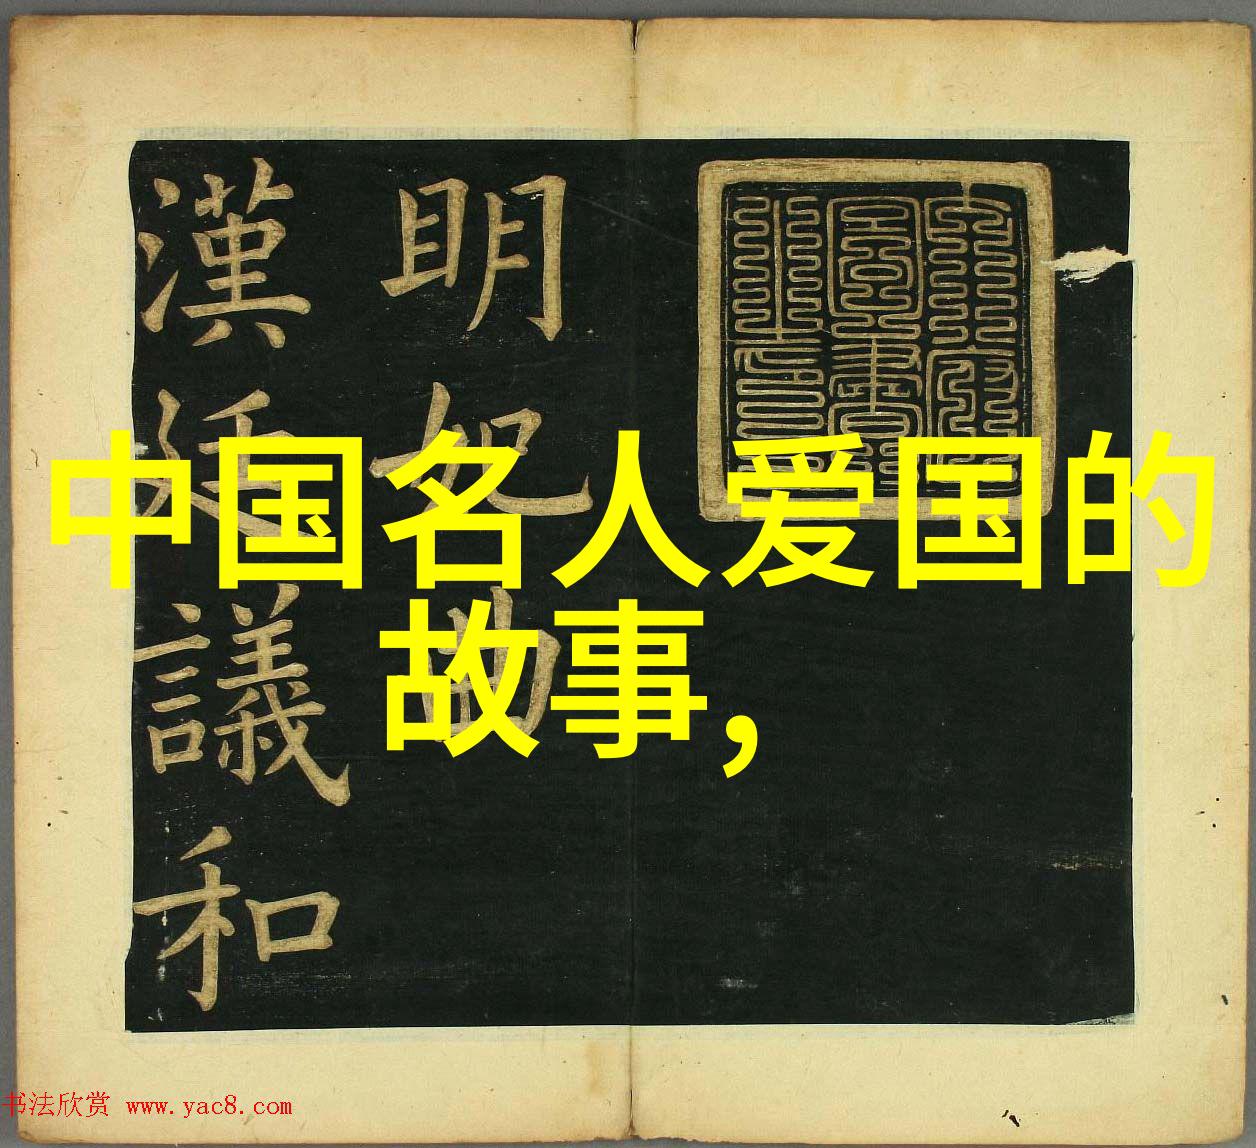 中国名人爱国的
故事,
明妃曲
漢廷議和
书法欣赏 www.yac8.com